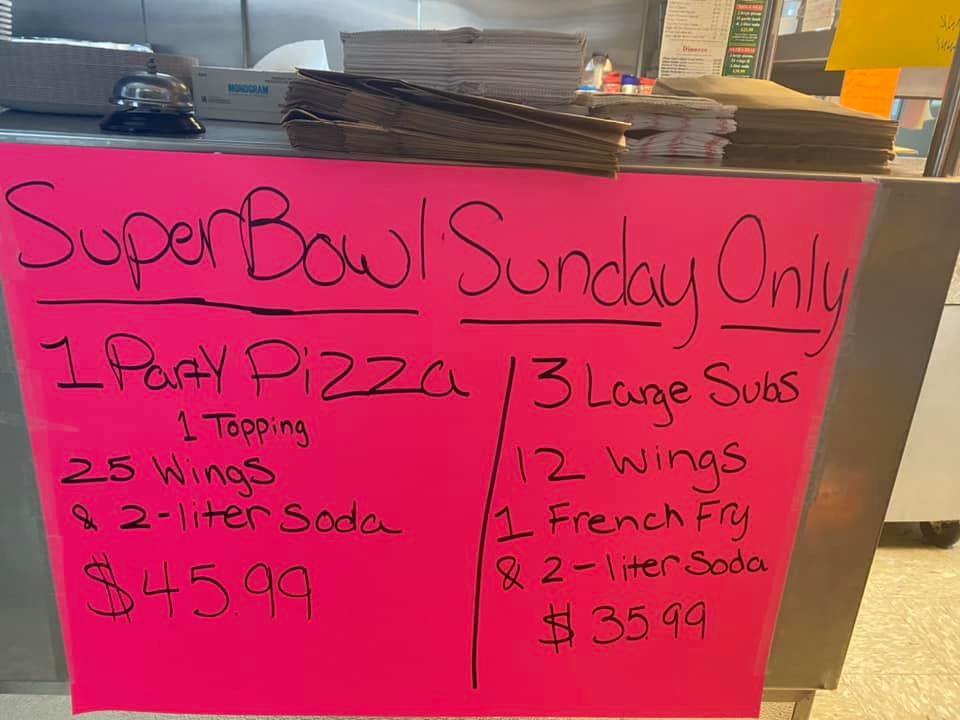 MONOGRAM
Dinners
SuperBowl Sunday Only
1 Party Pizza
1 Topping
25 Wings
& 2-liter Soda
$45.99
3 Large Subs
12 Wings
1 French Fry
& 2-liter Soda
$35.99